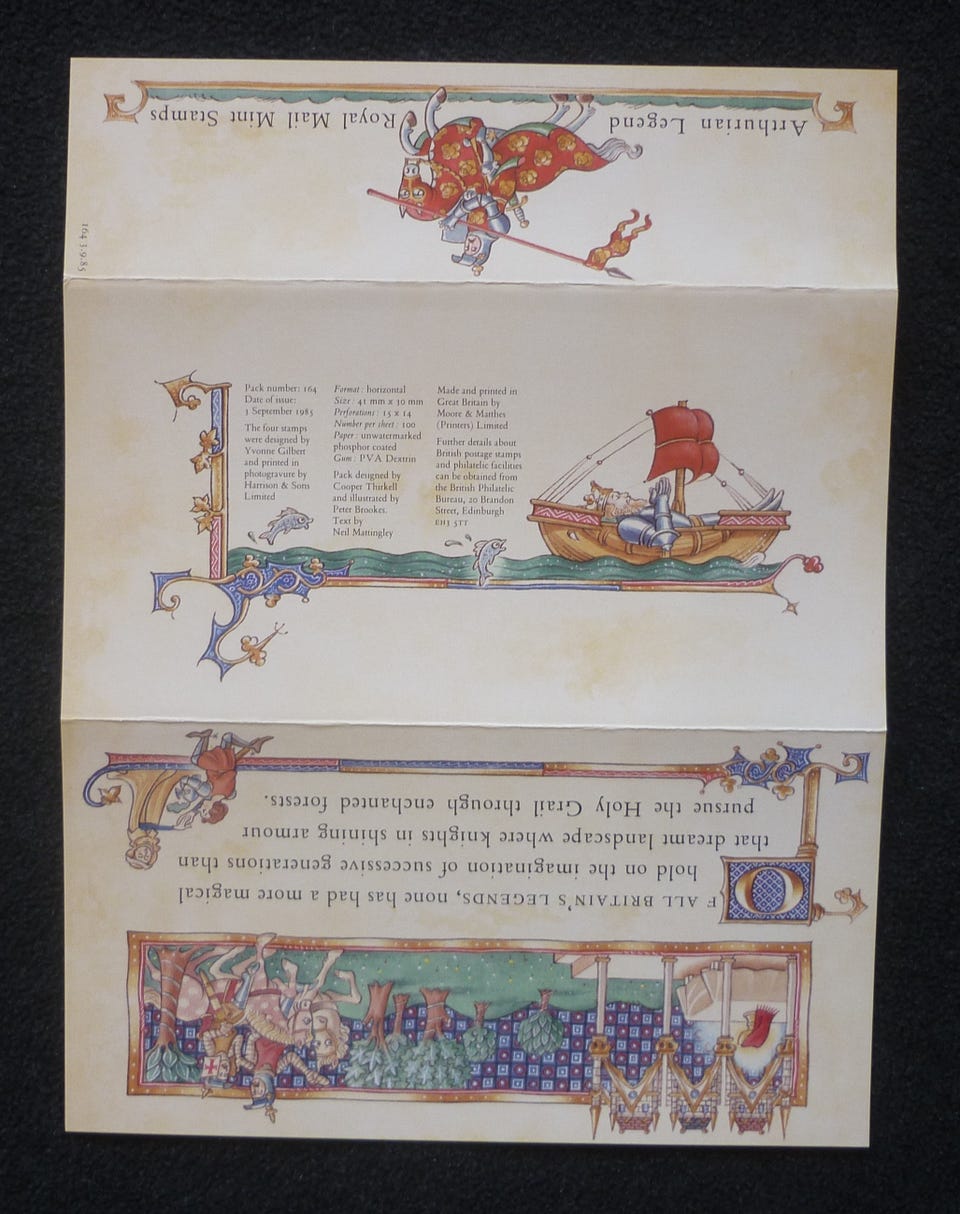 Arthurian Legend Royal Mail Mint Stamps
164 3·9·85
Pack number: 164
Date of issue:
3 September 1985
The four stamps
were designed by
Yvonne Gilbert
and printed in
photogravure by
Harrison & Sons
Limited
Format: horizontal
Size: 41 mm x 30 mm
Perforations: 15 x 14
Number per sheet: 100
Paper: unwatermarked
phosphor coated
Gum: PVA Dextrin
Pack designed by
Cooper Thirkell
and illustrated by
Peter Brookes.
Text by
Neil Mattingley
Made and printed in
Great Britain by
Moore & Matthes
(Printers) Limited
Further details about
British postage stamps
and philatelic facilities
can be obtained from
the British Philatelic
Bureau, 20 Brandon
Street, Edinburgh
EH3 5TT
OF ALL BRITAIN'S LEGENDS, none has had a more magical
hold on the imagination of successive generations than
that dreamt landscape where knights in shining armour
pursue the Holy Grail through enchanted forests.